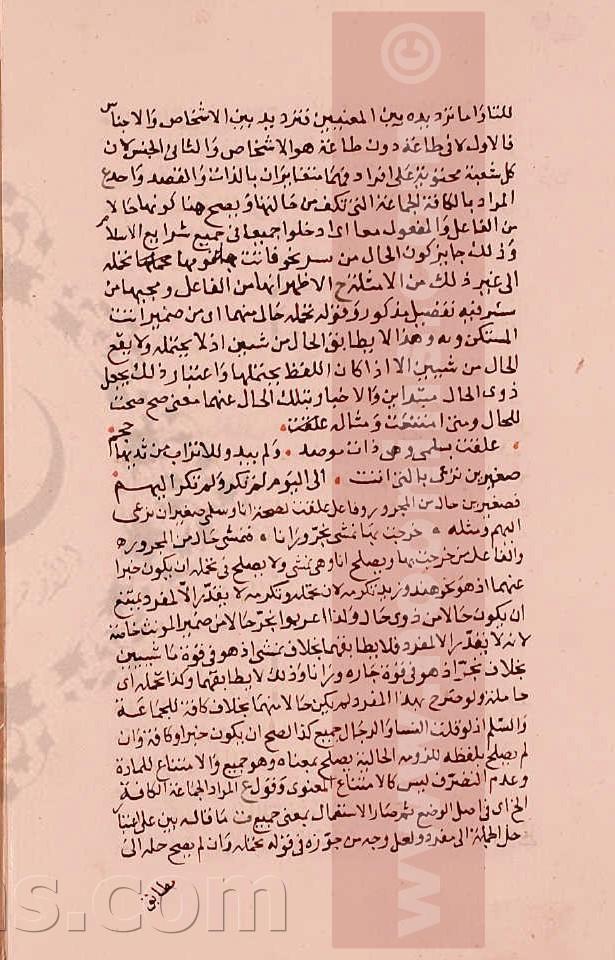 للتاواما ترديده بين المعنيين فترديد بين الاشخاص والاجناس
فالاول لا في طاعة دون طاعة هو الاشخاص والثاني الجنس لان
كل شعبة محتوية على افراد فهما متغايران بالذات والقصد واحد ع
المراد بالكافة الجماعة التي تكف من خالفها ويصح هنا كونها حالا
من الفاعل والمفعول معا اي ادخلوا جميعا في جميع شرايع الاسلام
وذلك جايز كون الحال من شيين نحو فاتت به قومها تحمله
الى غير ذلك من الامثلة ح الاظهر انها من الفاعل ومجيها من
شيين فيه تفصيل مذكور وقوله تحمله حال منهما اي من ضمير اتت
المستكن وبه وهذا لا يطابق الحال من شيين اذ لا يحتمله ولا يقع
الحال من شيين الا اذا كان اللفظ يحتملها واعتبار ذلك بجعل
ذوي الحال مبتداين والاخبار بتلك الحال عنهما متى صح صحت
للحال ومتى امتنعت ومثاله علقت
علقت بسلمى وهي ذات موصد ولم يبد وللاتراب من ثديها حجم
صغيرين نرعى بالتي انت الى اليوم لم نكبر ولم تكبر البهم
فصغيرين حال من المجرور وفاعل علقت لصحة انا وسلمى صغيران نرعى
البهم ومثله خرجت بها تمشي تجر وراانا فتمشي حال من المجرور
والفاعل من خرجت بها ويصلح انا وهي نمشي ولا يصلح في تحمله ان يكون خبرا
عنهما اذ هو نحو هند وزيد تكرمه لان تحمله وتكرمه لا يقدر الا لمفرد يمتنع
ان يكون حالا من ذوي حال ولذا اعربوا تجر حالا من ضمير المونث خاصة
لانه لا يقدر الا لمفرد فلا يطابقهما بخلاف نمشي اذ هو في قوة ماشيين
بخلاف تجر اذ هو في قوة جارة وراانا وذلك لا يطابقهما وكذا تحمله اي
حاملة ولو صرح بهذا المفرد لم يكن حالا منهما بخلاف كافة للجماعة
والسلم اذ لو قلت النسا والرجال جميع كذا الصح ان يكون خبرا وكافة وان
لم يصلح بلفظه للزومه الحالية يصلح بمعناه وهو جميع والامتناع للمادة
وعدم التصرف ليس كالامتناع المعنوي وقول ع المراد الجماعة الكافة
الخ اي في اصل الوضع ثم صار الاستعمال بمعنى جميع ف ما قاله بين على اعتبار
حل الجملة الى مفرد ولعل وجه من جوزه في قوله تحمله وان لم يصح حله الى
مطابق